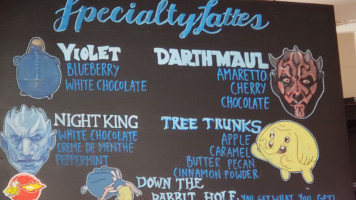 Specialty Lattes
VIOLET
BLUEBERRY
WHITE CHOCOLATE
DARTH MAUL
AMARETTO
CHERRY
CHOCOLATE
NIGHT KING
WHITE CHOCOLATE
CREME DE MENTHE
PEPPERMINT
TREE TRUNKS
APPLE
CARAMEL
BUTTER PECAN
CINNAMON POWDER
DOWN THE
RABBIT HOLE YOU GET WHAT YOU GET!